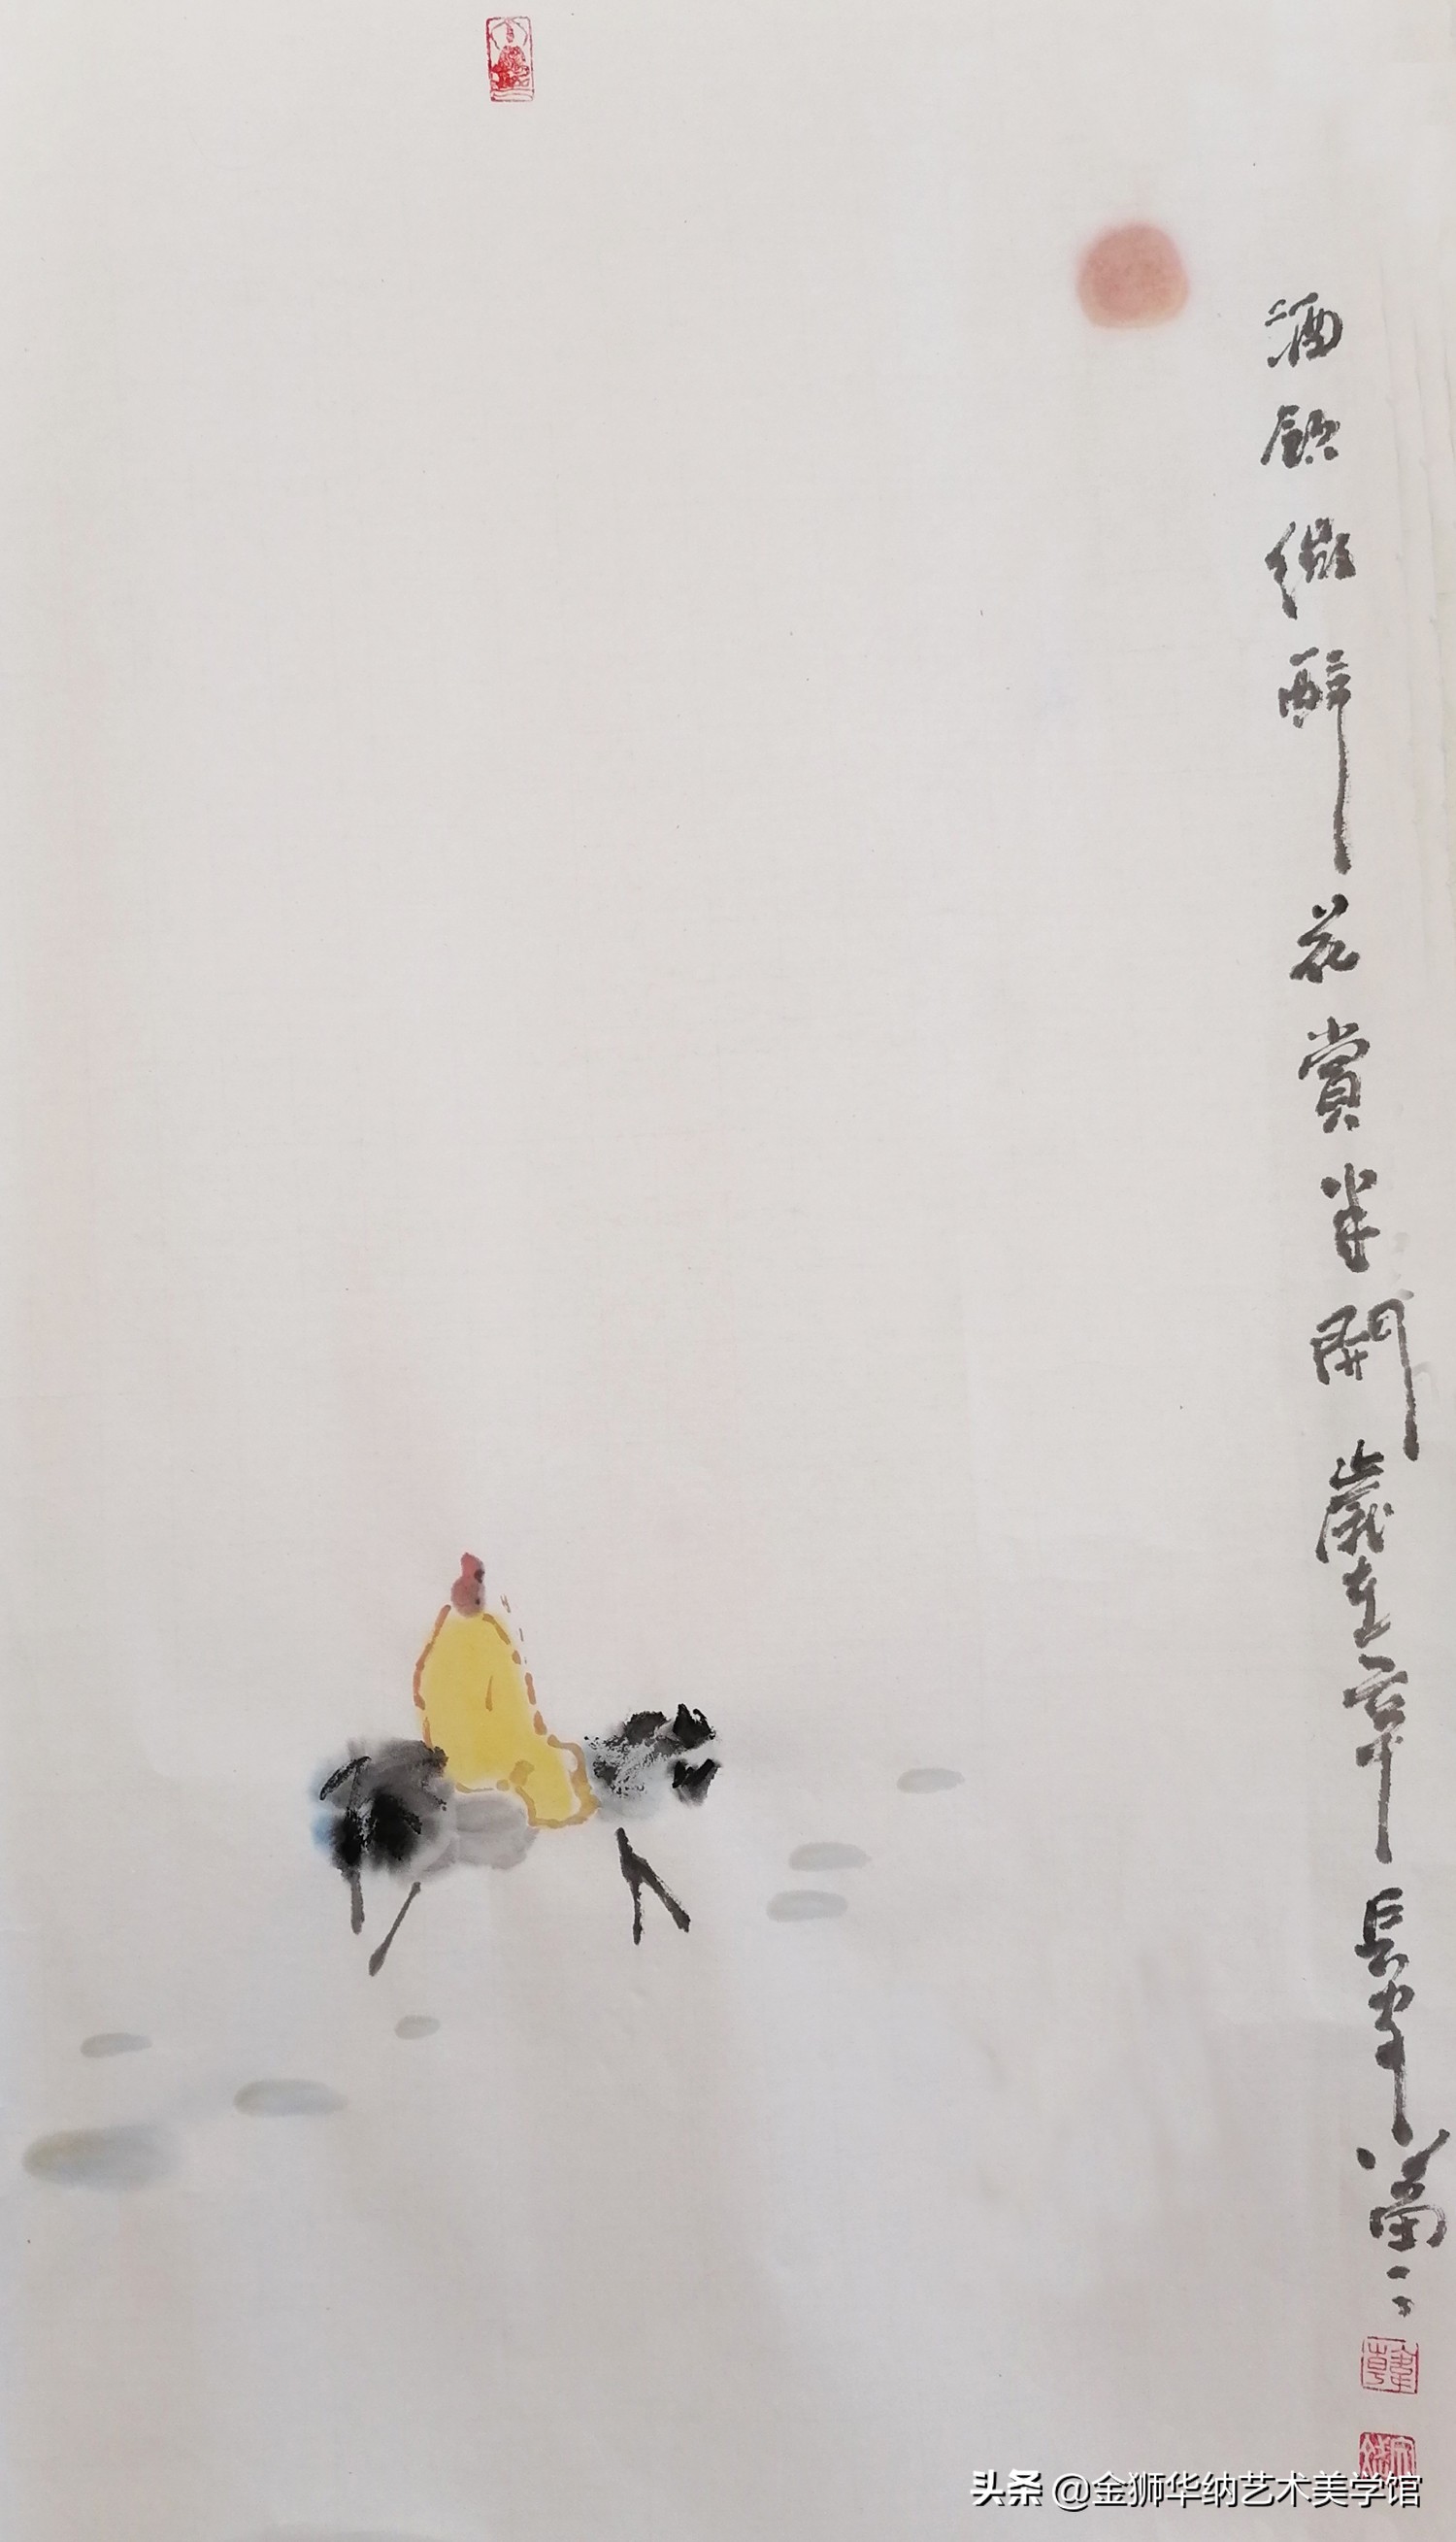 酒飲微醉花賞半開歲在辛長安萬
頭条 @金狮华纳艺术美学馆